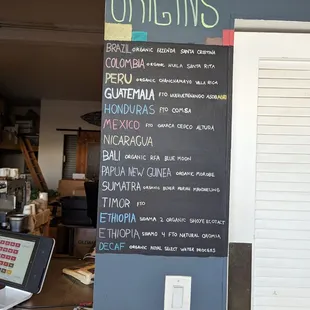 ORIGINS
BRAZIL ORGANIC FAZENDA SANTA CRISTINA
COLOMBIA ORGANIC HUILA SANTA RITA
PERU ORGANIC CHANCHAMAYO VILLA RICA
GUATEMALA FTO HUEHUETENANGO
HONDURAS FTO COMSA
MEXICO FTO OAXACA CEPCO ALTURA
NICARAGUA
BALI ORGANIC RFA BLUE MOON
PAPUA NEW GUINEA ORGANIC MOROBE
SUMATRA ORGANIC MANDHELING
TIMOR FTO
ETHIOPIA SIDAMA 2 ORGANIC
ETHIOPIA SIDAMO 4 FTO NATURAL
DECAF ORGANIC ROYAL SELECT WATER PROCESS